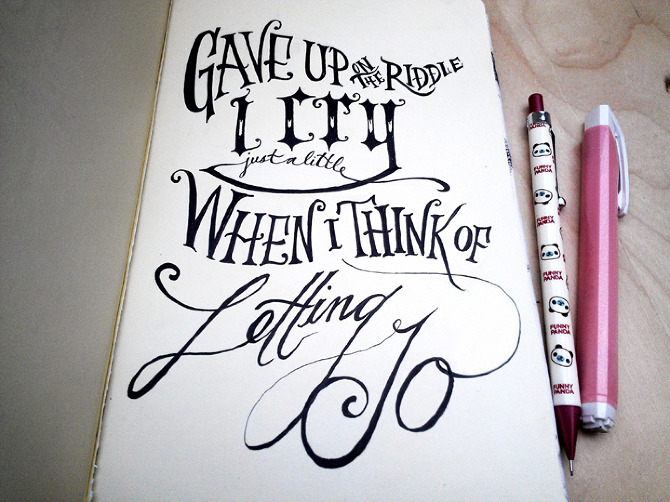 GAVE UP ON THE RIDDLE
I CRY
just a little
WHEN I THINK OF
Letting Go
PANDA
FUNNY PANDA
FUNNY PANDA
FUNNY PANDA
FUNNY PANDA
FUNNY PANDA